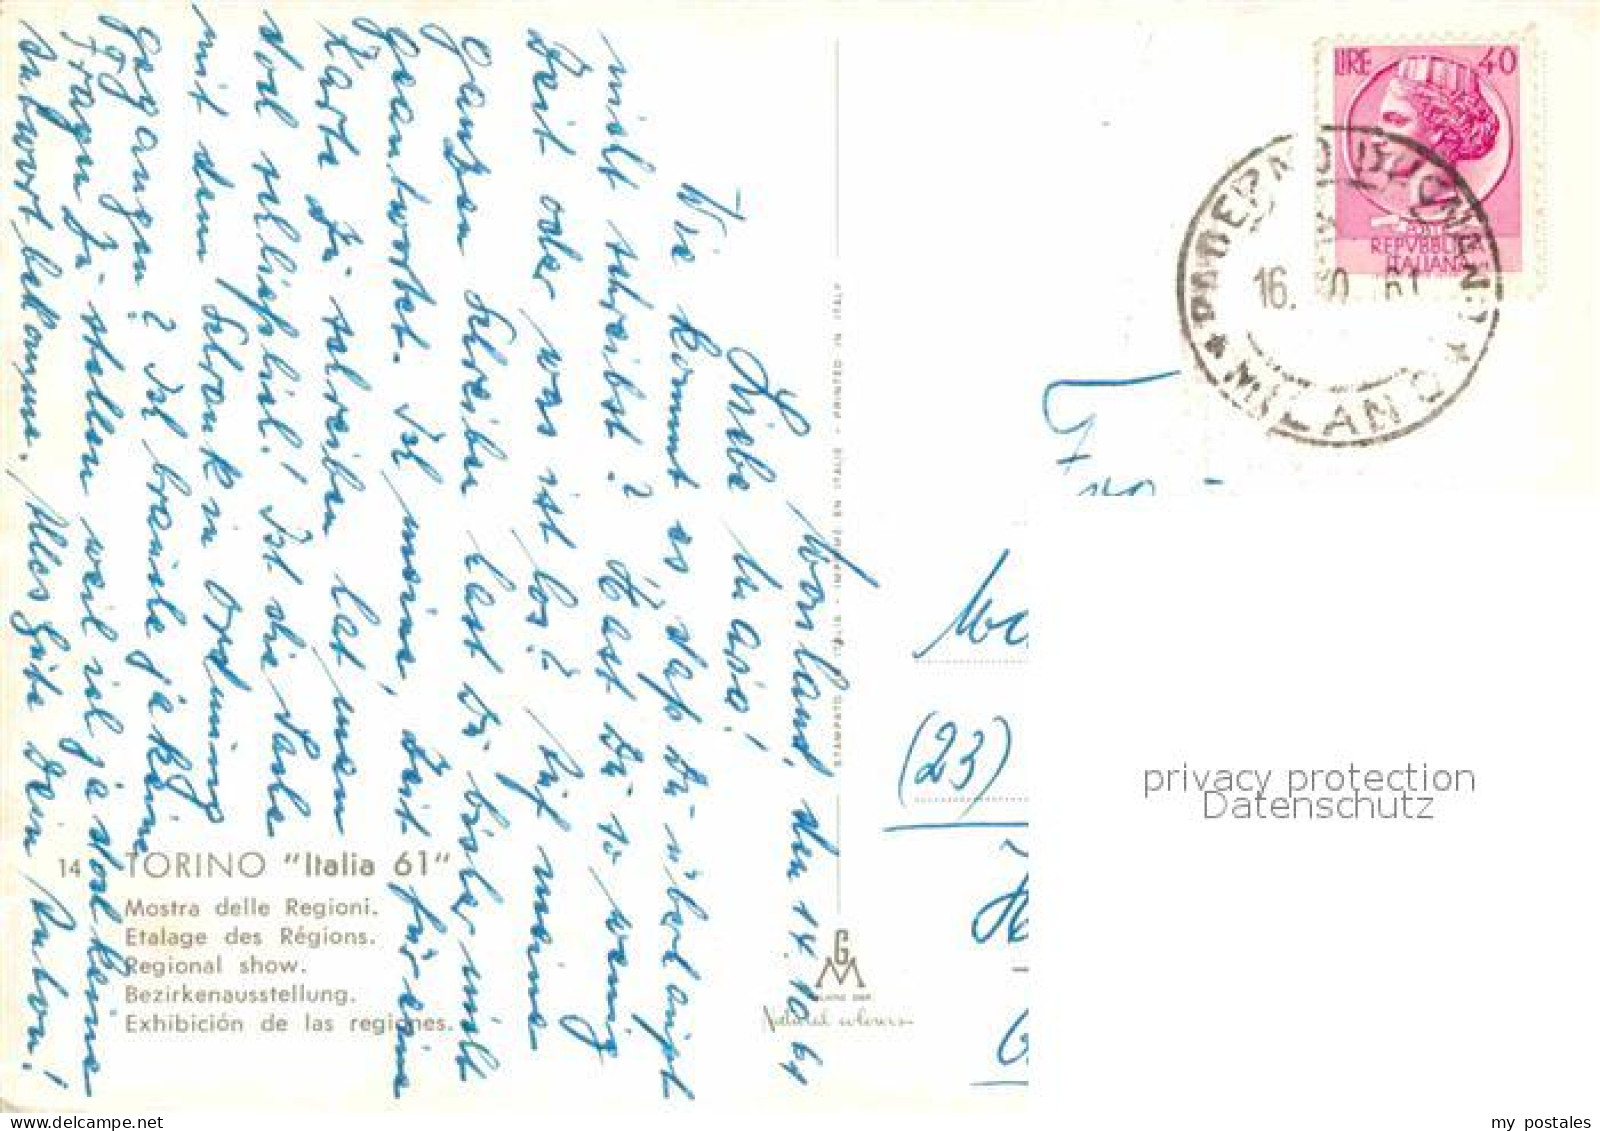 Mailand, den 14.10.61
Liebe Maria!
Wie kommt es, daß Du überhaupt
nicht schreibst? Hast Du so wenig
Zeit oder was ist los? Auf meine
ganzen Schreiben hast Du bisher nicht
geantwortet. Ich meine, Zeit für eine
Karte zu schreiben hat man
doch schließlich! Ist die Sache
mit dem Schrank in Ordnung
gegangen? Ich brauche ja keine
Fragen zu stellen weil ich ja doch keine
Antwort bekomme. Alles Gute Dein Anton!
14 TORINO "Italia 61"
Mostra delle Regioni.
Etalage des Régions.
Regional show.
Bezirkenausstellung.
Exhibición de las regiones.
STAMPATO IN ITALIA - IMPRIMÉ EN ITALIE - PRINTED IN ITALY
GM
Natural colours
LIRE 40
REPVBBLICA
ITALIANA
PADERNO DUGNANO
16. 10 61
* MILANO *
(23)
privacy protection
Datenschutz
my postales